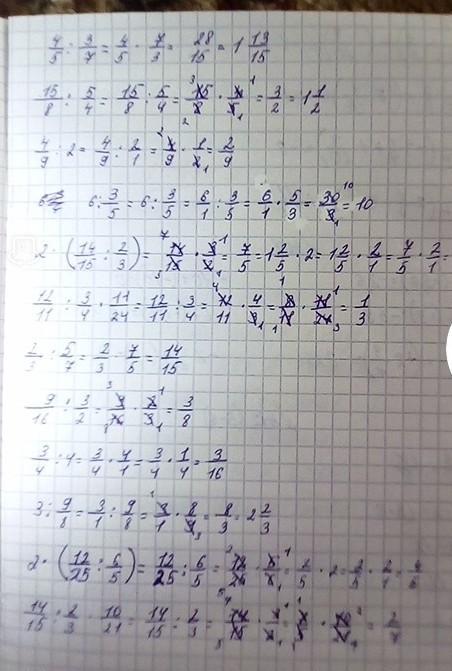 4/5 : 3/7 = 4/5 · 7/3 = 28/15 = 1 13/15
15/8 : 5/4 = 15/8 : 5/4 = 15/8 · 4/5 = 3/2 = 1 1/2
4/9 : 2 = 4/9 : 2/1 = 4/9 · 1/2 = 2/9
6 : 3/5 = 6 : 3/5 = 6/1 : 3/5 = 6/1 · 5/3 = 30/3 = 10
2 · (14/15 : 2/3) = 14/15 · 3/2 = 7/5 = 1 2/5 · 2 = 1 2/5 · 2/1 = 7/5 · 2/1 =
12/11 : 3/4 · 11/24 = 12/11 : 3/4 = 12/11 · 4/3 = · 11/24 = 1/3
2/3 : 5/7 = 2/3 · 7/5 = 14/15
9/16 : 3/2 = 9/16 · 2/3 = 3/8
3/4 : 4 = 3/4 · 4/1 = 3/4 · 1/4 = 3/16
3 : 9/8 = 3/1 : 9/8 = 3/1 · 8/9 = 8/3 = 2 2/3
2 · (12/25 : 6/5) = 12/25 : 6/5 = · 5/6 = 2/5 · 2 = 2/5 · 2/1 = 4/5
14/15 : 2/3 · 10/21 = 14/15 : 2/3 = 14/15 ·